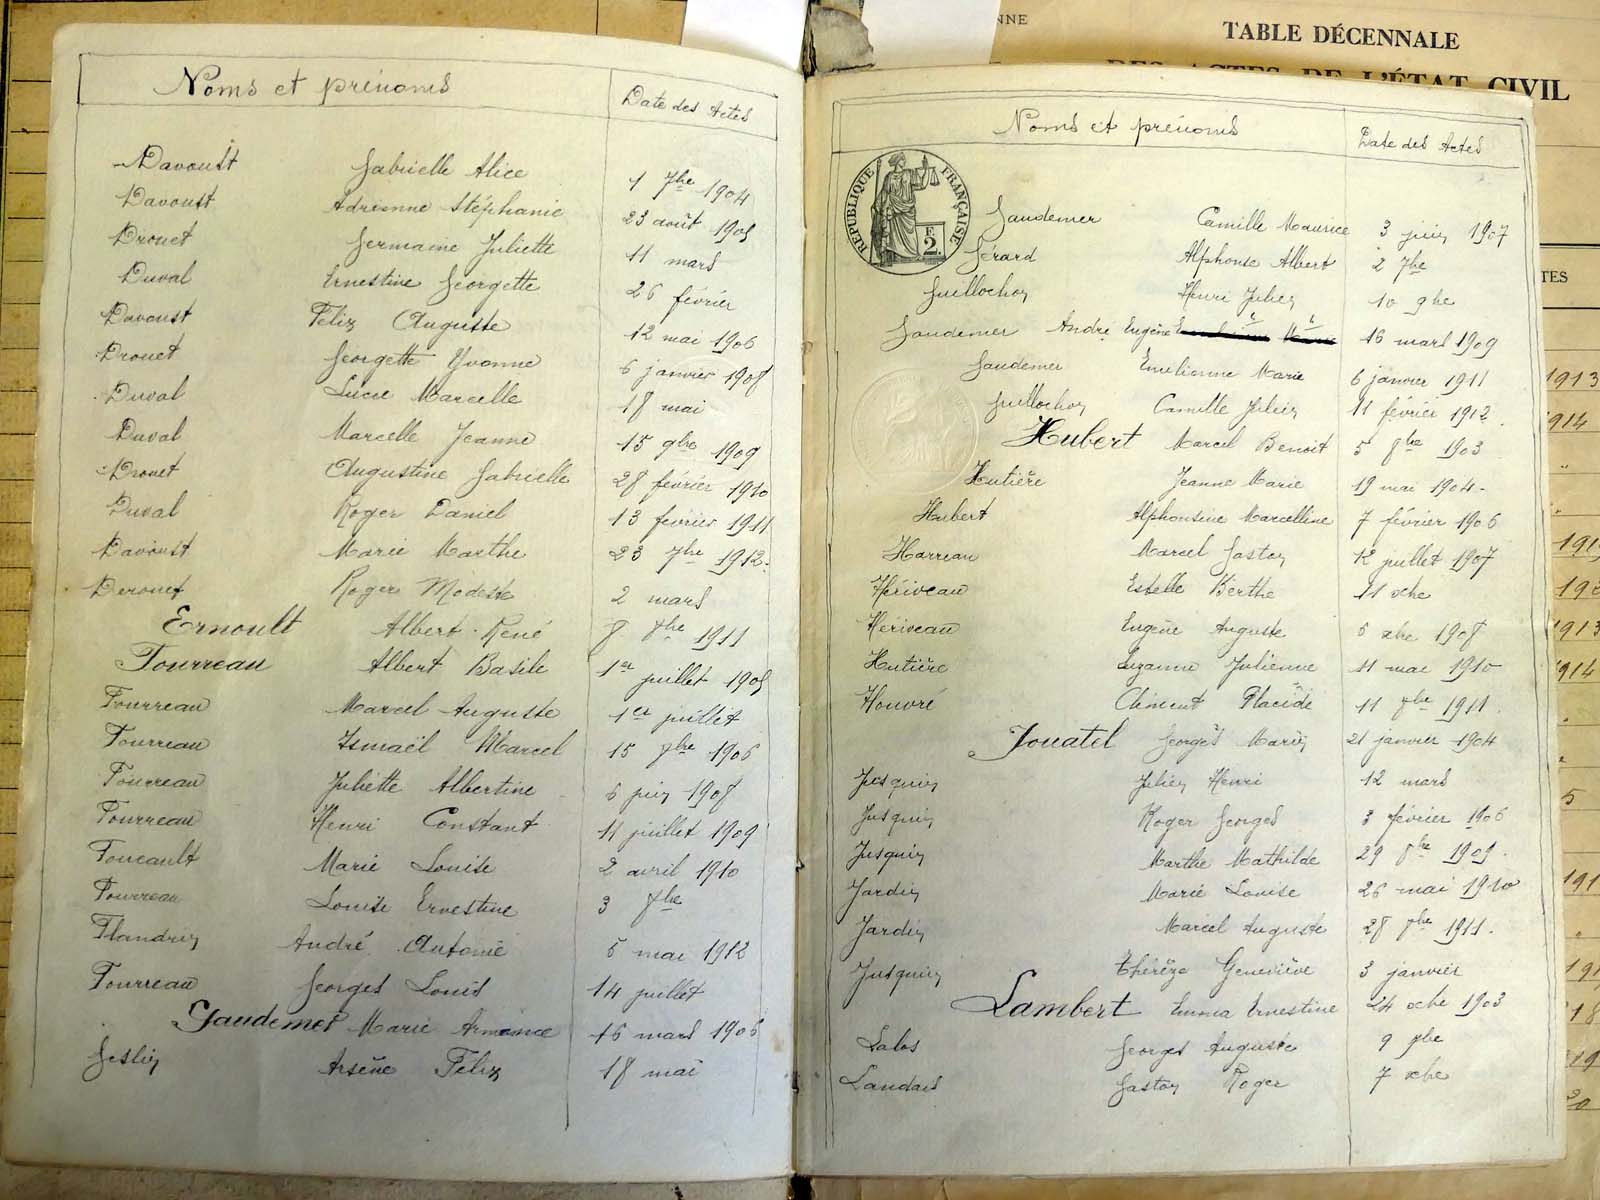 Noms et prénoms Date des Actes
Davoust Gabrielle Alice 1 7bre 1904
Davoust Adrienne Stéphanie 23 août 1905
Drouet Germaine Juliette 11 mars
Duval Ernestine Georgette 26 février
Davoust Félix Auguste 12 mai 1906
Drouet Georgette Yvonne 6 janvier 1908
Duval Lucie Marcelle 18 mai
Duval Marcelle Jeanne 15 9bre 1909
Drouet Augustine Gabrielle 28 février 1910
Duval Roger Daniel 13 février 1911
Davoust Marie Marthe 23 7bre 1912.
Derouet Roger Modeste 2 mars
Ernoult Albert René 8 8bre 1911
Fourreau Albert Basile 1er juillet 1905
Fourreau Marcel Auguste 1er juillet
Fourreau Ismaël Marcel 15 8bre 1906
Fourreau Juliette Albertine 6 juin 1908
Fourreau Henri Constant 11 juillet 1909
Foucault Marie Louise 2 avril 1910
Fourreau Louise Ernestine 3 8bre
Flandrin André Antonie 5 mai 1912
Fourreau Georges Louis 14 juillet
Gaudemer Marie Armance 16 mars 1906
Geslin Arsène Félix 18 mai
Noms et prénoms Date des Actes
RÉPUBLIQUE FRANÇAISE
F.
2.
Gaudemer Camille Maurice 3 juin 1907
Gérard Alphonse Albert 2 7bre
Guillochon Henri Julien 10 9bre
Gaudemer André Eugène 16 mars 1909
Gaudemer Emilienne Marie 6 janvier 1911
Guillochon Camille Julien 11 février 1912
Hubert Marcel Benoit 5 8bre 1903
Hutière Jeanne Marie 19 mai 1904
Hubert Alphonsine Marcelline 7 février 1906
Harreau Marcel Gaston 12 juillet 1907
Hériveau Estelle Berthe 11 xbre
Hériveau Eugène Auguste 6 xbre 1908
Hutière Suzanne Julienne 11 mai 1910
Houvré Clément Placide 11 8bre 1911
Jouatel Georges Marin 21 janvier 1904
Jusquin Julien Henri 12 mars
Jusquin Roger Georges 3 février 1906
Jusquin Marthe Mathilde 29 8bre 1909
Jardin Marie Louise 26 mai 1910
Jardin Marcel Auguste 28 7bre 1911.
Jusquin Thérèze Geneviève 3 janvier
Lambert Emma Ernestine 24 xbre 1903
Lalos Georges Auguste 9 9bre
Landais Gaston Roger 7 xbre
NNE
TABLE DÉCENNALE
DES ACTES DE L'ÉTAT CIVIL
TES
1913
1914
1913
1914